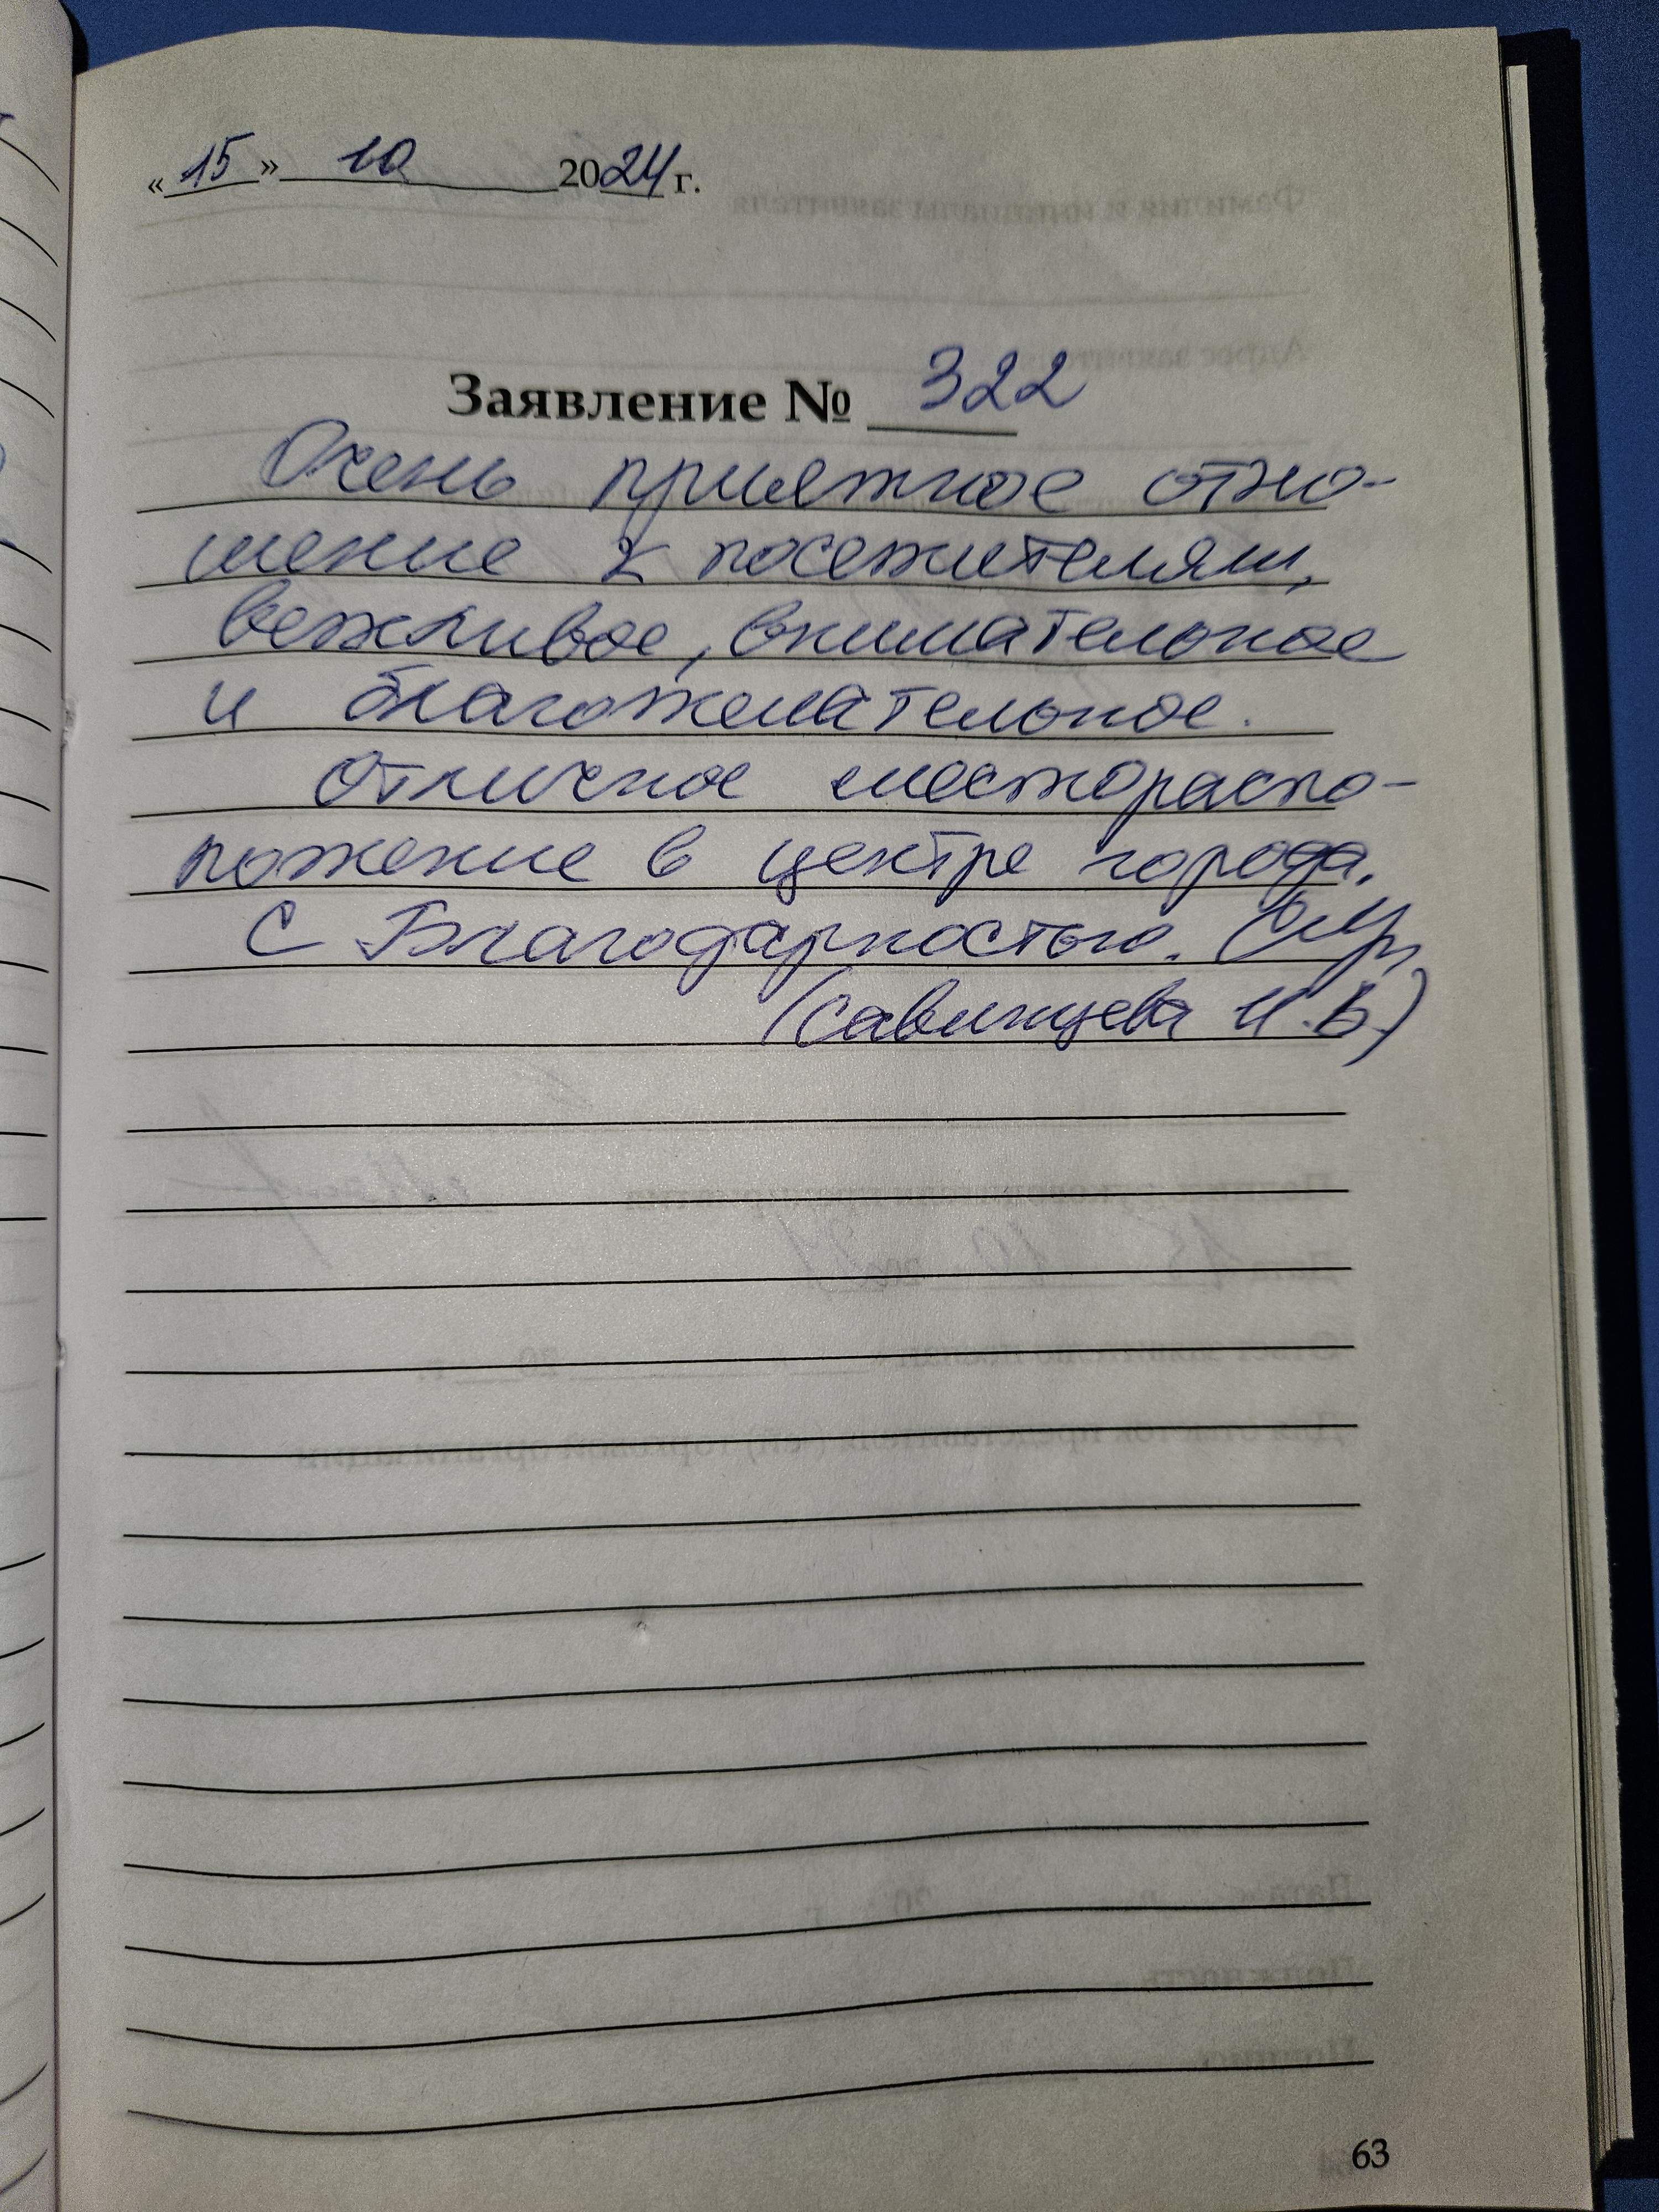 «15» 10 2024 г.
Заявление № 322
Очень приятное отно-
шение к посетителям,
вежливое, внимательное
и благожелательное.
Отличное месторaспо-
ложение в центре города.
С Благодарностью.
(Савинцева И.В.)
63